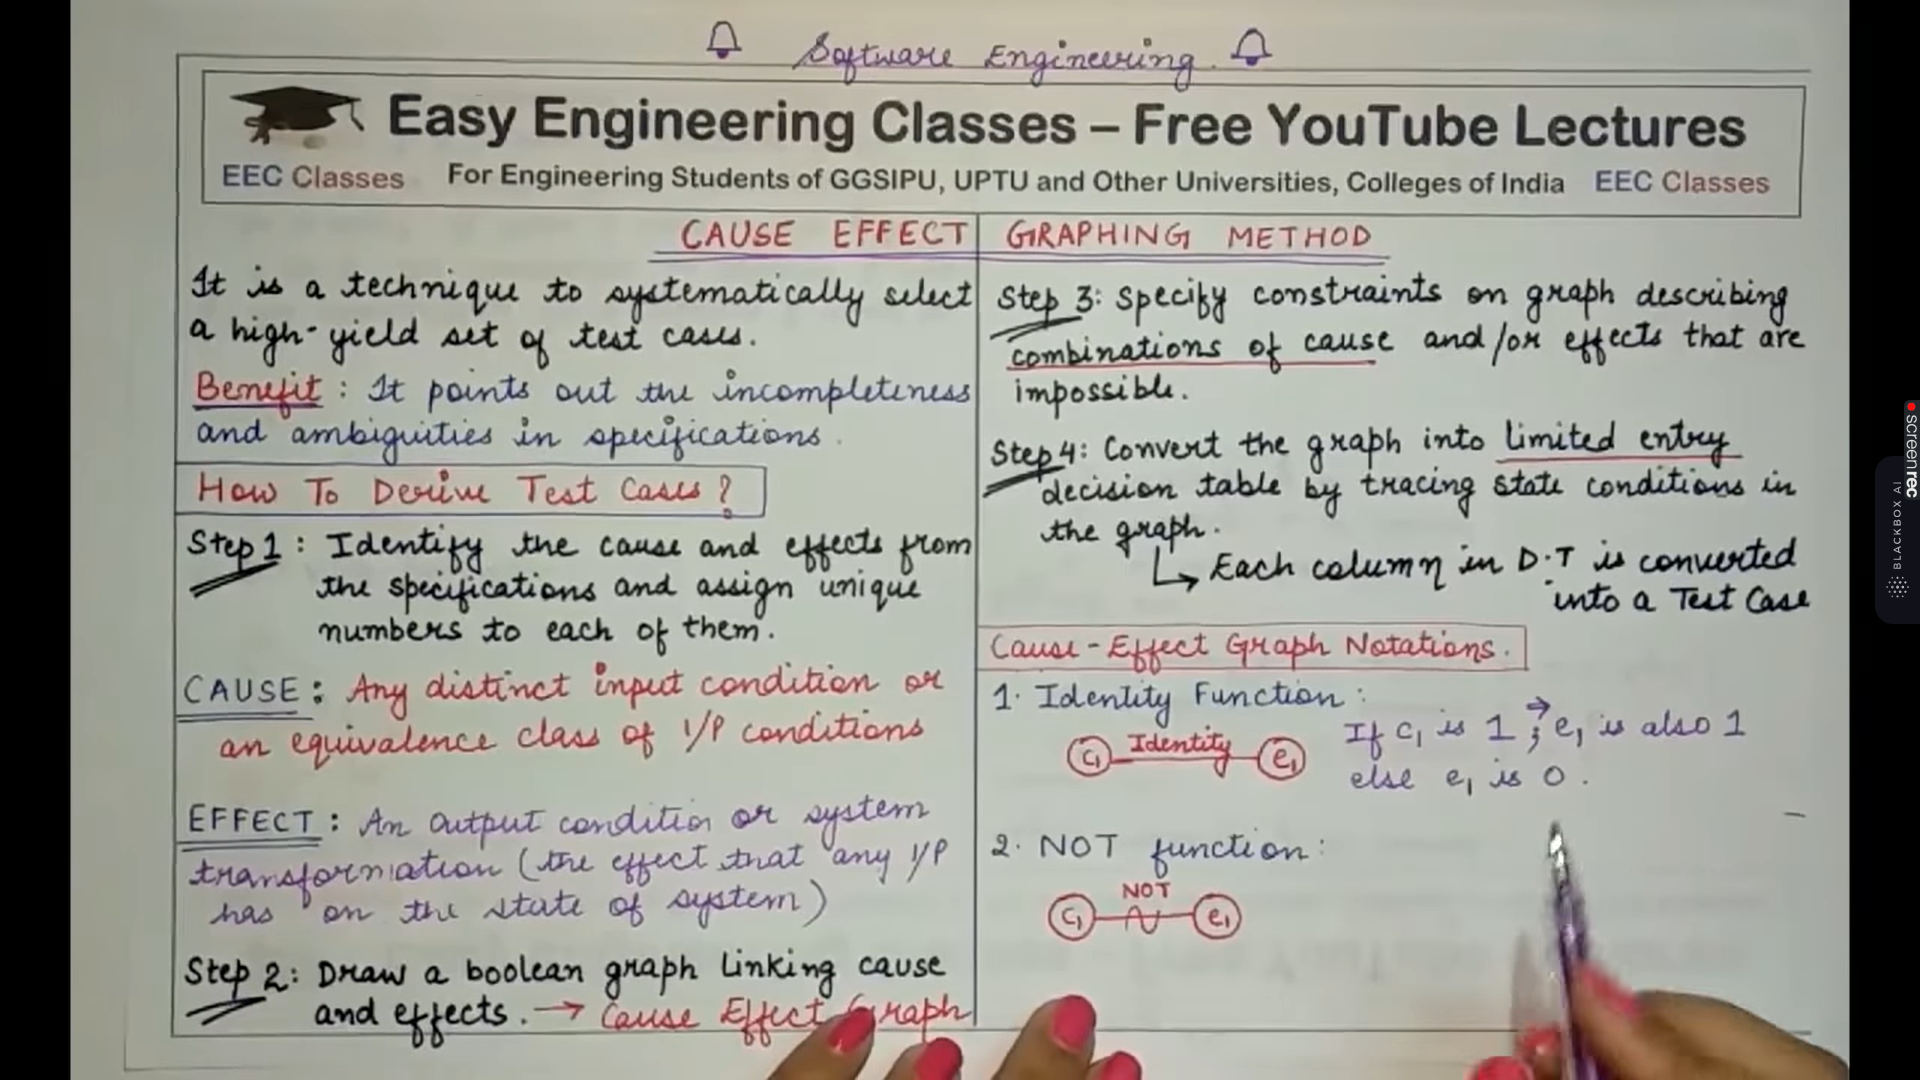 Software Engineering
Easy Engineering Classes – Free YouTube Lectures
EEC Classes For Engineering Students of GGSIPU, UPTU and Other Universities, Colleges of India EEC Classes
CAUSE EFFECT GRAPHING METHOD
It is a technique to systematically select
a high-yield set of test cases.
Benefit : It points out the incompleteness
and ambiguities in specifications.
How To Derive Test Cases?
Step 1 : Identify the cause and effects from
the specifications and assign unique
numbers to each of them.
CAUSE : Any distinct input condition or
an equivalence class of I/P conditions
EFFECT : An output condition or system
transformation (the effect that any I/P
has on the state of system)
Step 2: Draw a boolean graph linking cause
and effects. → Cause Effect Graph
Step 3: Specify constraints on graph describing
combinations of cause and/or effects that are
impossible.
Step 4: Convert the graph into limited entry
decision table by tracing state conditions in
the graph.
↳ Each column in D.T is converted
into a Test Case
Cause-Effect Graph Notations.
1. Identity Function :
C₁ Identity e₁
If c₁ is 1 ; → e₁ is also 1
else e₁ is 0.
2. NOT function :
NOT
C₁ e₁
screenrec
BLACKBOX AI